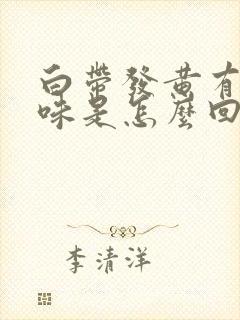 白帶發黃有
味是怎麼回
李清洋